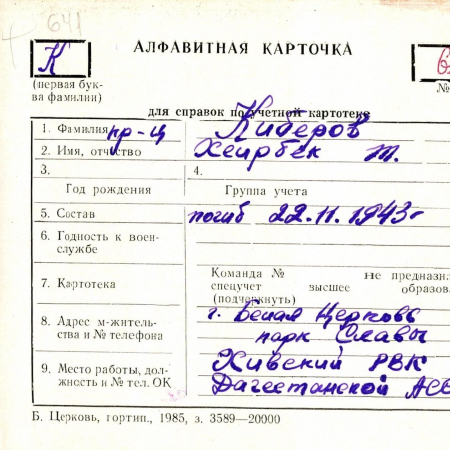 641
К
АЛФАВИТНАЯ КАРТОЧКА
6
(первая бук-
ва фамилии)
№
для справок по учетной картотеке
1. Фамилия пр-ц Киберов
2. Имя, отчество Хеирбек М.
3.
4.
Год рождения
Группа учета
5. Состав погиб 22.11.1943г
6. Годность к воен-
службе
7. Картотека
Команда № не предназна
спецучет высшее образова
(подчеркнуть)
8. Адрес м-житель-
ства и № телефона
г. Белая Церковь
парк Славы
9. Место работы, дол-
жность и № тел. ОК
Хивский РВК
Дагестанской АСС
Б. Церковь, гортип., 1985, з. 3589—20000